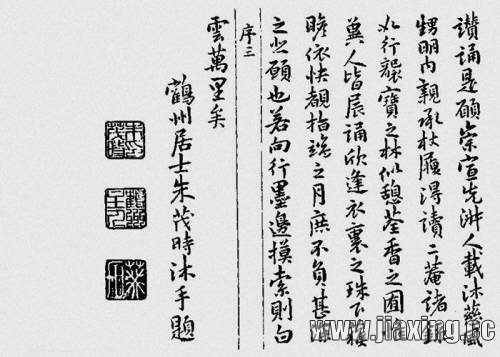 讚誦是願崇宣先人載沐慈
甥明內親承杖履得讀二菴諸
如行寶之林似憩荃香之圃
冀人皆展誦欣逢衣裏之珠不
瞻依快覩指端之月庶不負甚深
之悲願也若向行墨邊摸索則白
序三
雲萬里矣
鶴州居士朱茂時沐手題
www.jiaxing.cc